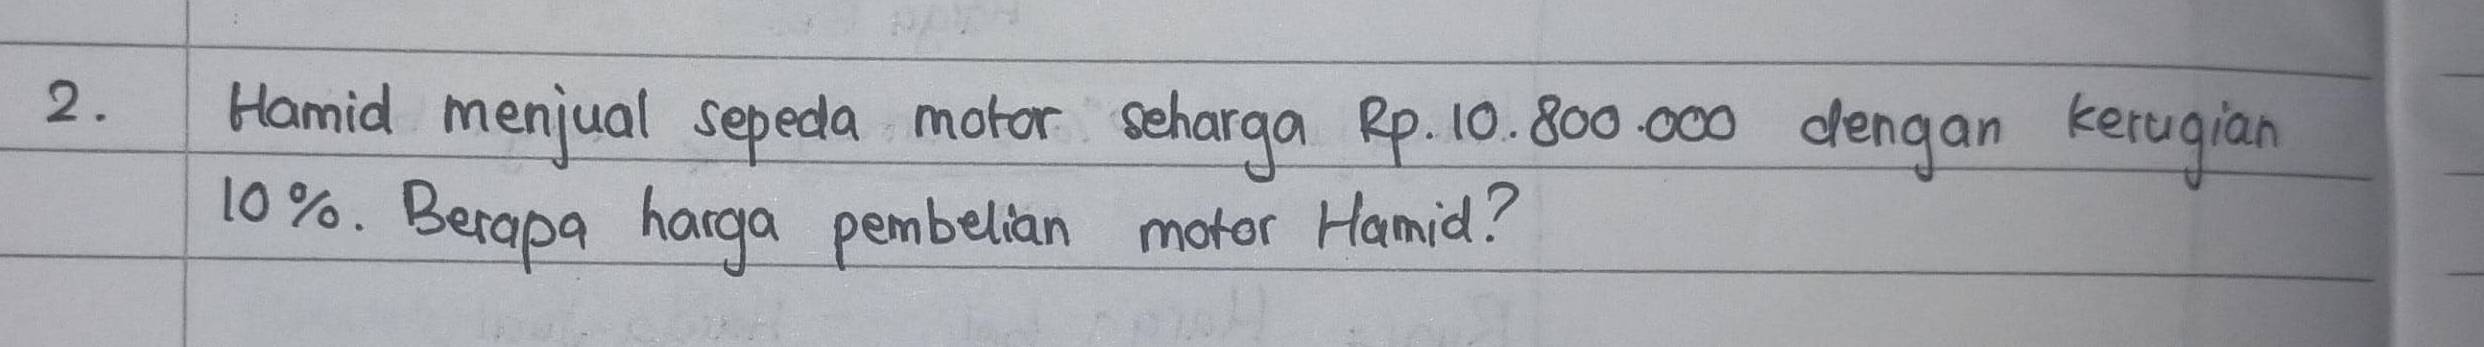 2. Hamid menjual sepeda motor seharga Rp. 10.800.000 dengan kerugian
10%. Berapa harga pembelian motor Hamid?